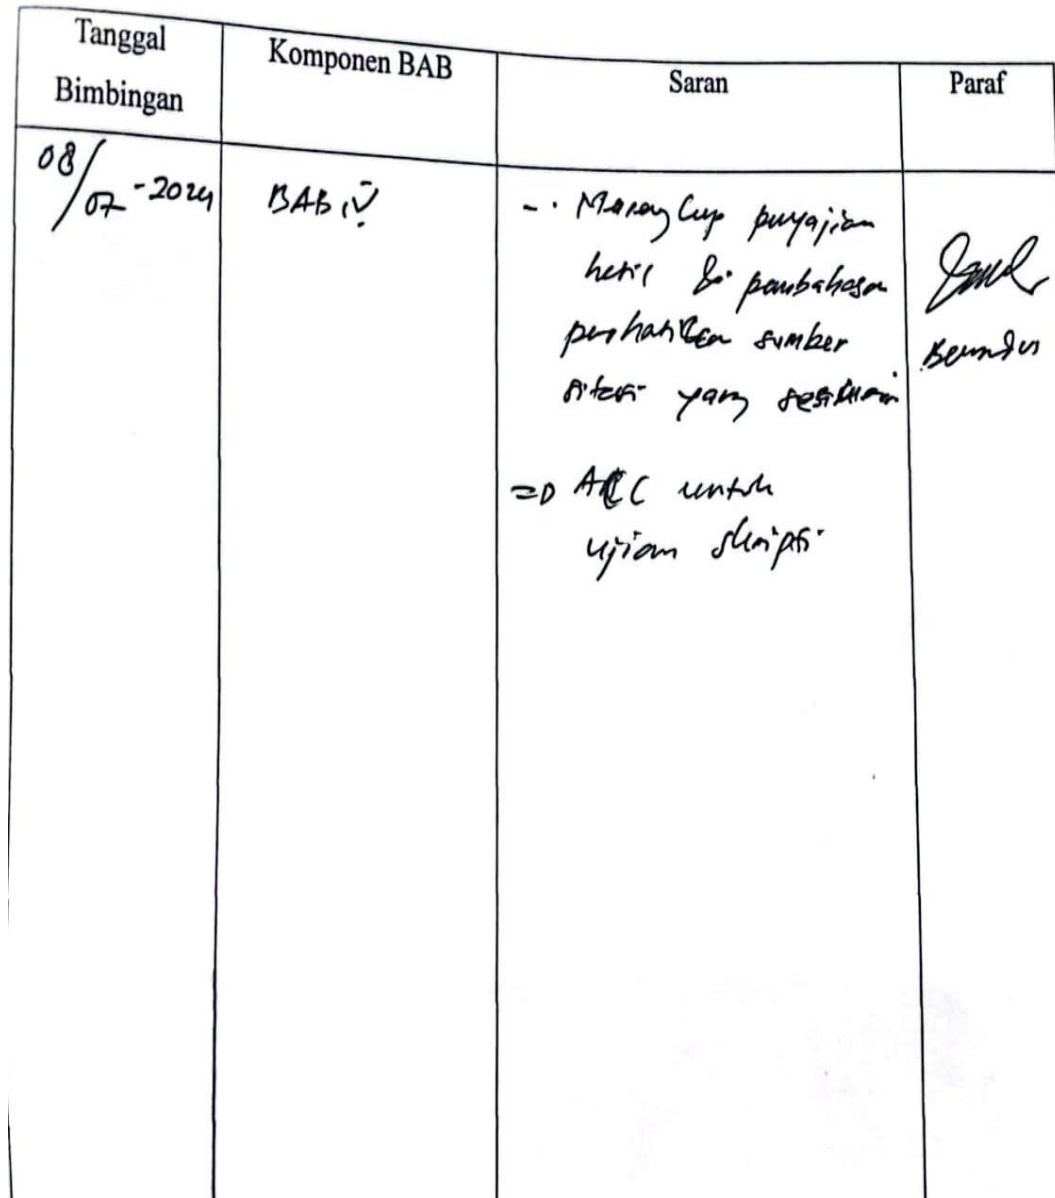 Tanggal
Bimbingan
Komponen BAB
Saran
Paraf
08/07-2024
BAB IV
- penyajian
hasil & pembahasan
perhatikan sumber
sitasi yang
=> ACC untuk
ujian skripsi